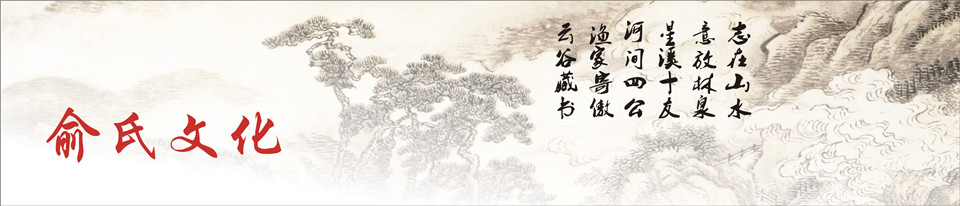 志在山水
意放林泉
星溪十友
河间四公
渔家寄傲
云谷藏书
俞氏文化